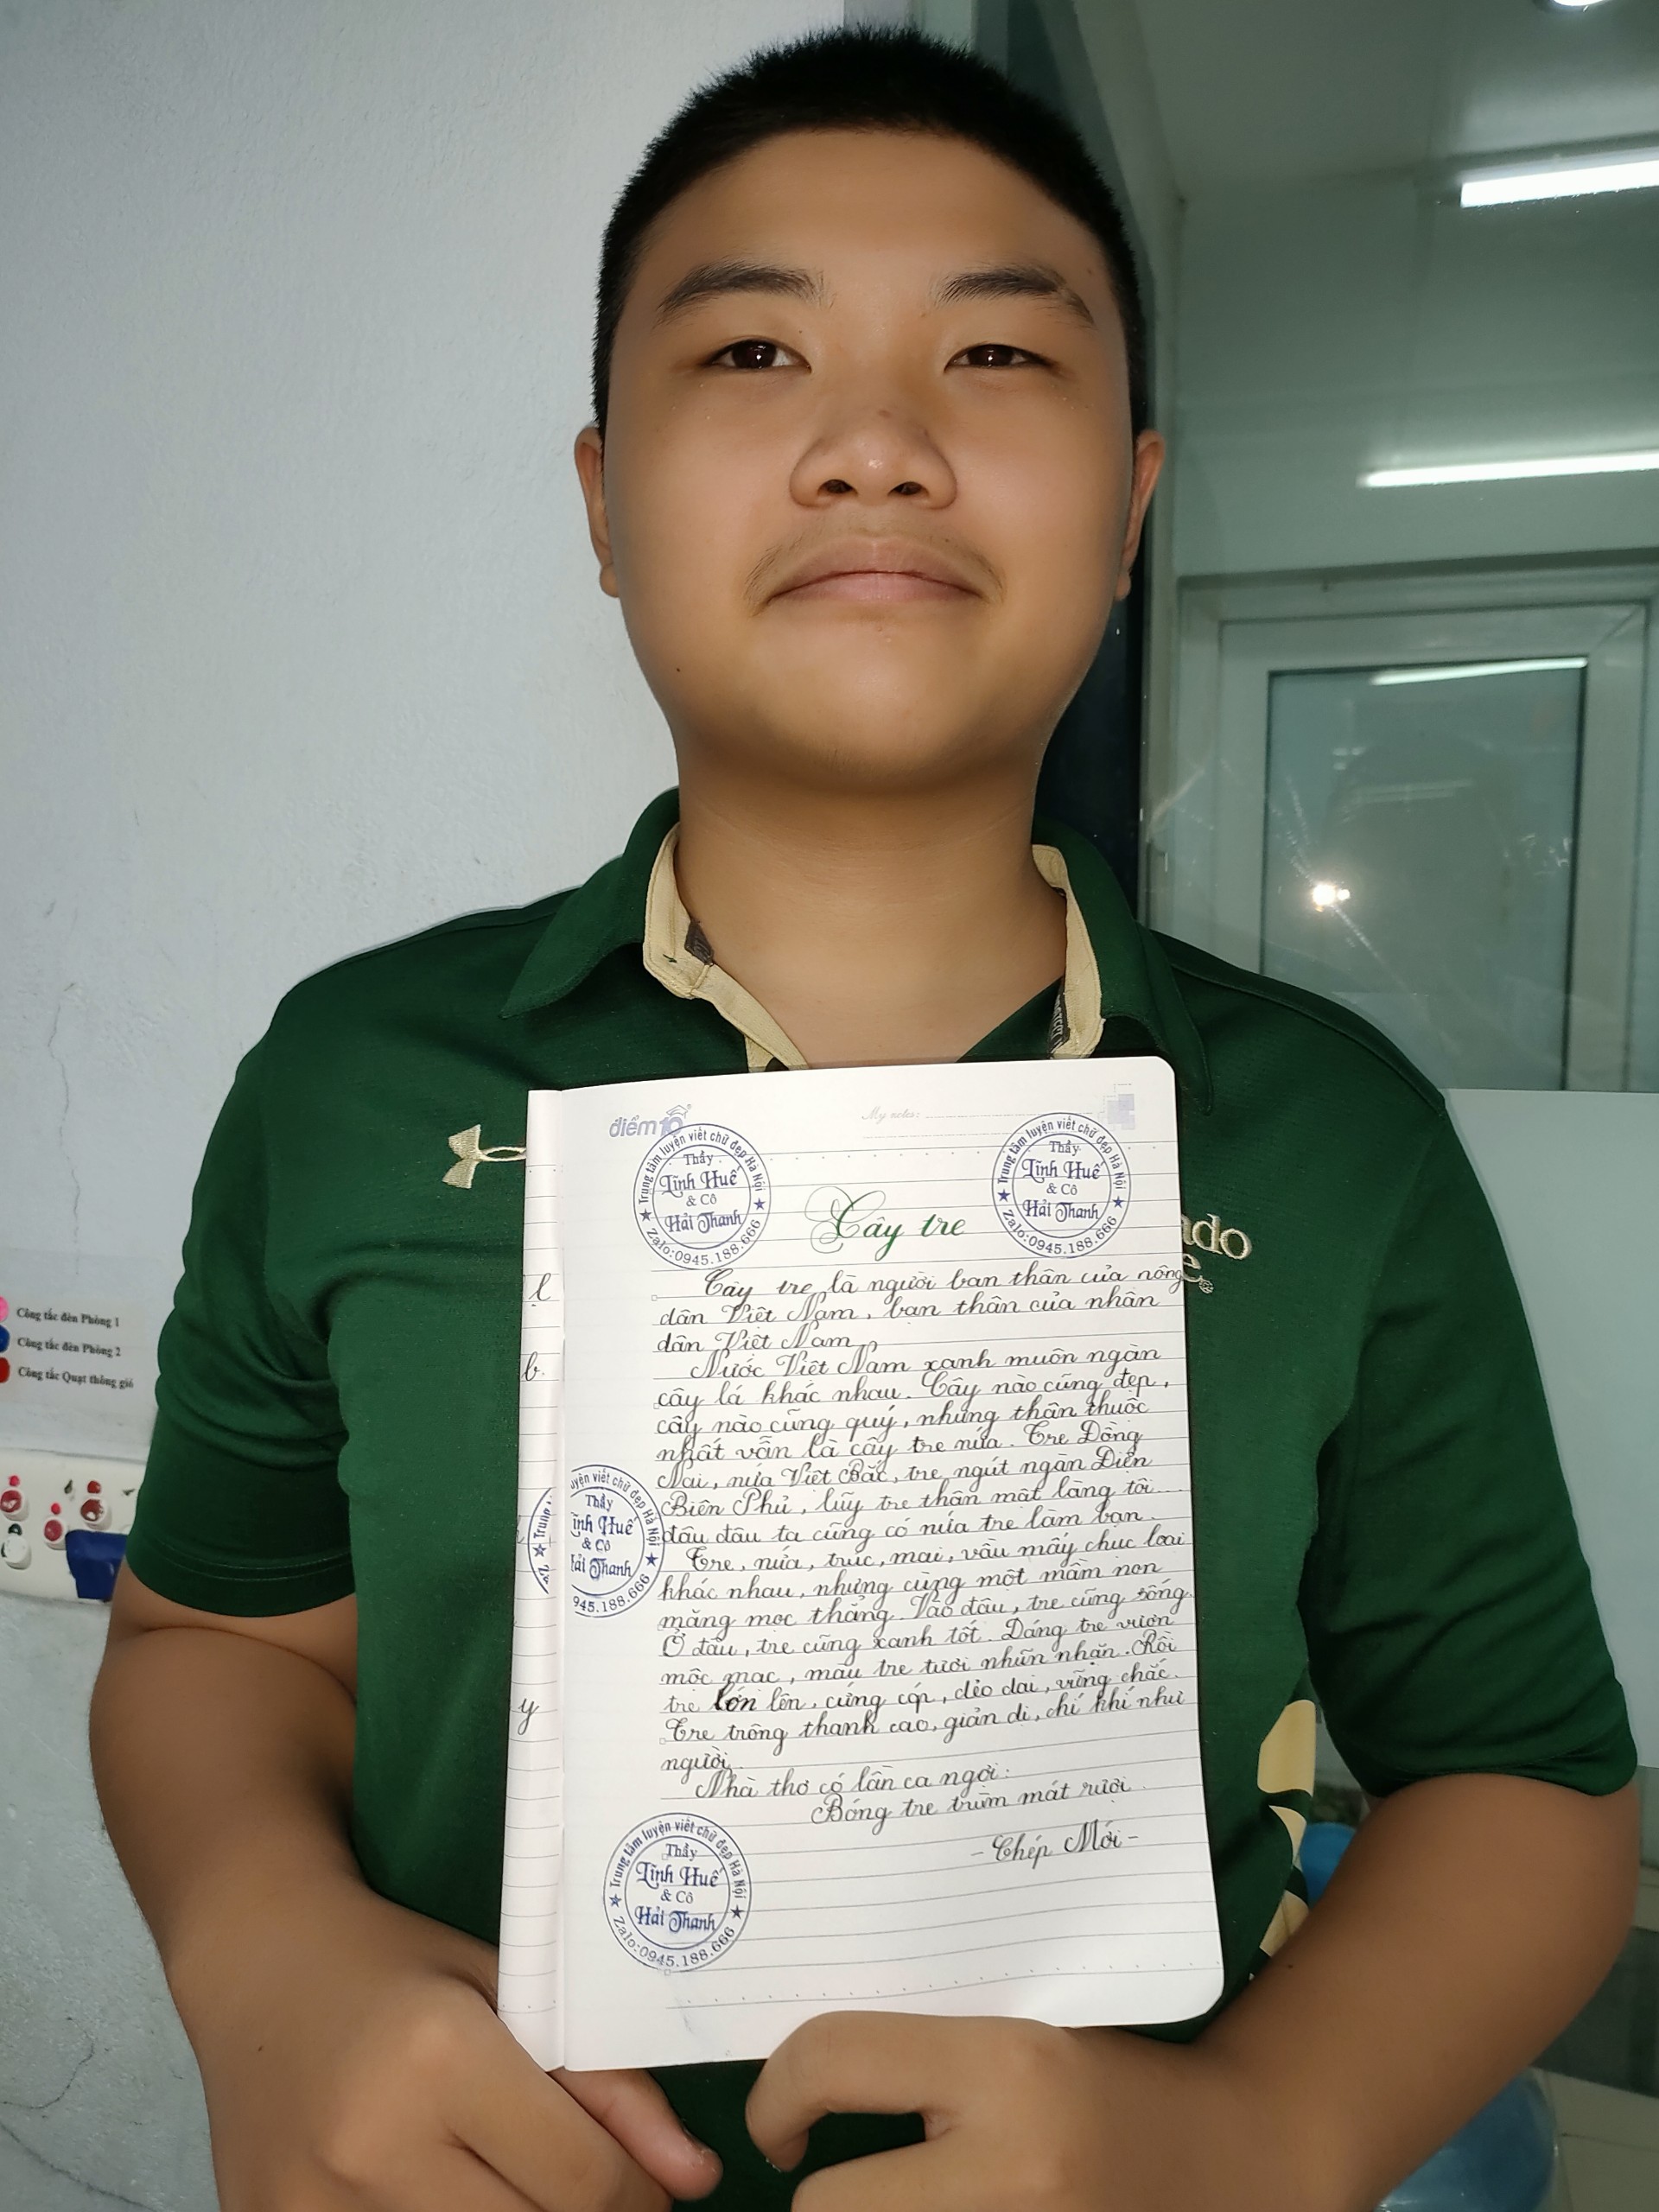 điểm10
My notes:
Trung tâm luyện viết chữ đẹp Hà Nội
Thầy
Lĩnh Huế
& Cô
Hải Thanh
Zalo:0945.188.666
Trung tâm luyện viết chữ đẹp Hà Nội
Thầy
Lĩnh Huế
& Cô
Hải Thanh
Zalo:0945.188.666
Cây tre
Cây tre là người bạn thân của nông
dân Việt Nam, bạn thân của nhân
dân Việt Nam
Nước Việt Nam xanh muôn ngàn
cây lá khác nhau. Cây nào cũng đẹp,
cây nào cũng quý, nhưng thân thuộc
nhất vẫn là cây tre nứa. Tre Đồng
Nai, nứa Việt Bắc, tre ngút ngàn Điện
Biên Phủ, lũy tre thân mật làng tôi...
đâu đâu ta cũng có nứa tre làm bạn.
Tre, nứa, trúc, mai, vầu mấy chục loại
khác nhau, nhưng cùng một mầm non
măng mọc thẳng. Vào đâu, tre cũng sống.
Ở đâu, tre cũng xanh tốt. Dáng tre vươn
mộc mạc, màu tre tươi nhũn nhặn. Rồi
tre lớn lên, cứng cáp, dẻo dai, vững chắc.
Tre trông thanh cao, giản dị, chí khí như
người.
Nhà thơ có lần ca ngợi:
Bóng tre trùm mát rượi
- Thép Mới -
uyện viết chữ đẹp Hà Nội
Thầy
ĩnh Huế
& Cô
Hải Thanh
945.188.666
Trung
Trung tâm luyện viết chữ đẹp Hà Nội
Thầy
Lĩnh Huế
& Cô
Hải Thanh
Zalo:0945.188.666
l
b
y
ado
e
Công tắc đèn Phòng 1
Công tắc đèn Phòng 2
Công tắc Quạt thông gió